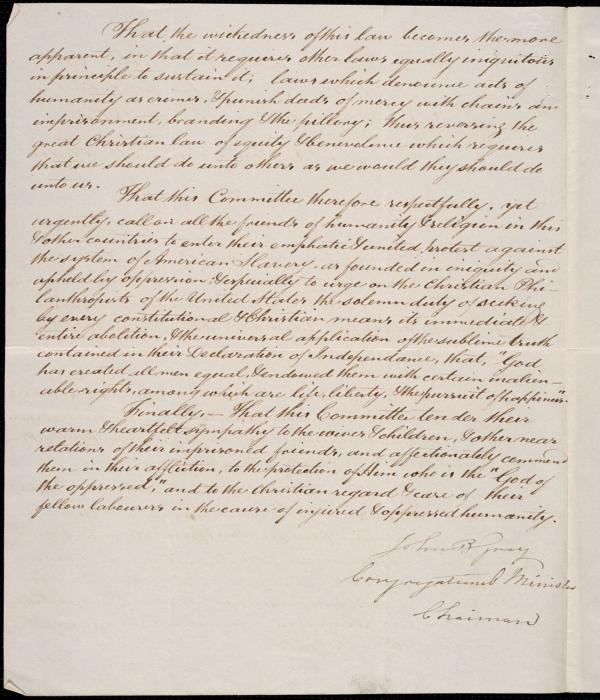 That, the wickedness of this law becomes the more
apparent, in that it requires other laws equally iniquitous
in principle to sustain it; laws which denounce acts of
humanity as crimes, & punish deeds of mercy with chains
imprisonment, branding & the pillory; thus reversing the
great Christian law of equity & benevolence which requires
that we should do unto others as we would they should do
unto us.
That this Committee therefore respectfully, yet
urgently, call on all the friends of humanity & religion in this
& other countries to enter their emphatic & united protest against
the system of American Slavery, as founded in iniquity and
upheld by oppression, & especially to urge on the Christian Phi-
lanthropists of the United States the solemn duty of seeking
by every constitutional & Christian means its immediate &
entire abolition, & the universal application of the sublime truth
contained in their Declaration of Independance, that, "God
has created all men equal, & endowed them with certain inalien-
able rights, among which are life, liberty, & the pursuit of happiness".
Finally, – That this Committee tender their
warm & heartfelt sympathy to the wives & children, & other near
relations of their imprisoned friends, and affectionately commend
them in their affliction, to the protection of Him who is the "God of
the oppressed," and to the Christian regard & care of their
fellow labourers in the cause of injured & oppressed humanity.
John B Gray
Congregational Minister
Chairman